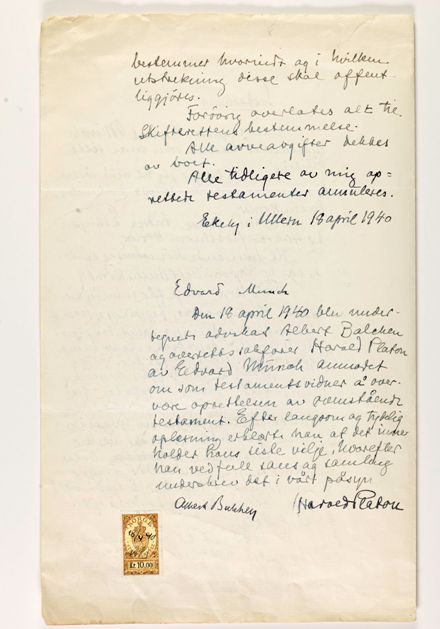 bestemmer hvorvidt og i hvilken
utstrekning disse skal offent-
liggjöres.
Forövrig overlates alt til
Skifterettens bestemmelse.
Alle arveavgifter dekkes
av boet.
Alle tidligere av mig op-
rettede testamenter annuleres.
Ekely i Ullern 18 april 1940
Edvard Munch
Den 18 april 1940 blev under-
tegnete advokat Albert Balchen
og overrettssakförer Harald Platon
av Edvard Munch anmodet
om som testamentsvidner å over-
være oprettelsen av ovenstående
testament. Efter langsom og tydelig
oplesning erklærte han at det inne-
holder hans siste vilje, hvorefter
han ved full sans og samling
underskrev det i vårt påsyn
Albert Balchen Harald Platon
NORGE
18/4 40
Kr 10.00